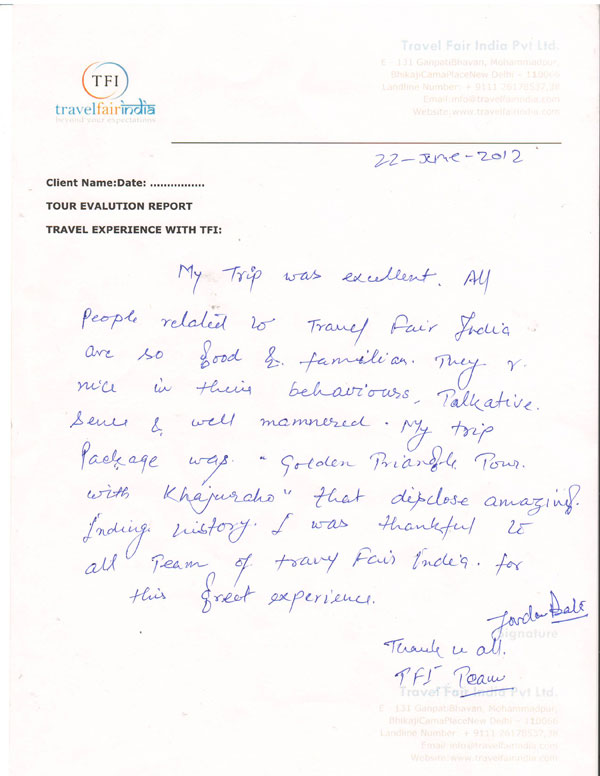 Travel Fair India Pvt Ltd.
E - 131 GanpatiBhavan, Mohammadpur,
BhikajiCamaPlaceNew Delhi - 110066
Landline Number: + 9111 26178537,38
Email:info@travelfairindia.com
Website:www.travelfairindia.com
TFI
travelfairindia
beyond your expectations
22-June-2012
Client Name:Date: ................
TOUR EVALUTION REPORT
TRAVEL EXPERIENCE WITH TFI:
My Trip was excellent. All
People related to Travel Fair India
are so good & familiar. They r
nice in their behaviours, Talkative.
Sense & well mannered. My trip
Package was. "Golden Triangle Tour.
with Khajuraho" that disclose amazing.
Inding history. I was thankful to
all Team of travel Fair India. for
this great experience.
Jordan
Signature
Thank u all.
TFI Team
Travel Fair India Pvt Ltd.
E - 131 GanpatiBhavan, Mohammadpur,
BhikajiCamaPlaceNew Delhi - 110066
Landline Number: + 9111 26178537,38
Email:info@travelfairindia.com
Website:www.travelfairindia.com